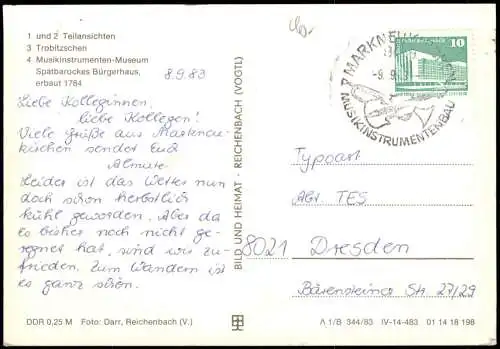 1 und 2 Teilansichten
3 Trobitzschen
4 Musikinstrumenten-Museum
Spätbarockes Bürgerhaus,
erbaut 1784
8.9.83
Liebe Kolleginnen,
liebe Kollegen!
Viele Grüße aus Markneu-
kirchen sendet Euch
Almute
Leider ist das Wetter nun
doch schon herbstlich
kühl geworden. Aber da
es bisher noch nicht ge-
regnet hat, sind wir zu-
frieden. Zum Wandern ist
es ganz schön.
DDR 0,25 M Foto: Darr, Reichenbach (V.)
BILD UND HEIMAT · REICHENBACH (VOGTL)
MARKNEU
-9.9.
MUSIKINSTRUMENTENBAU
10
Typoart
Abt. TES
8021 Dresden
Bärensteiner Str. 27/29
A 1/B 344/83 IV-14-483 01 14 18 198